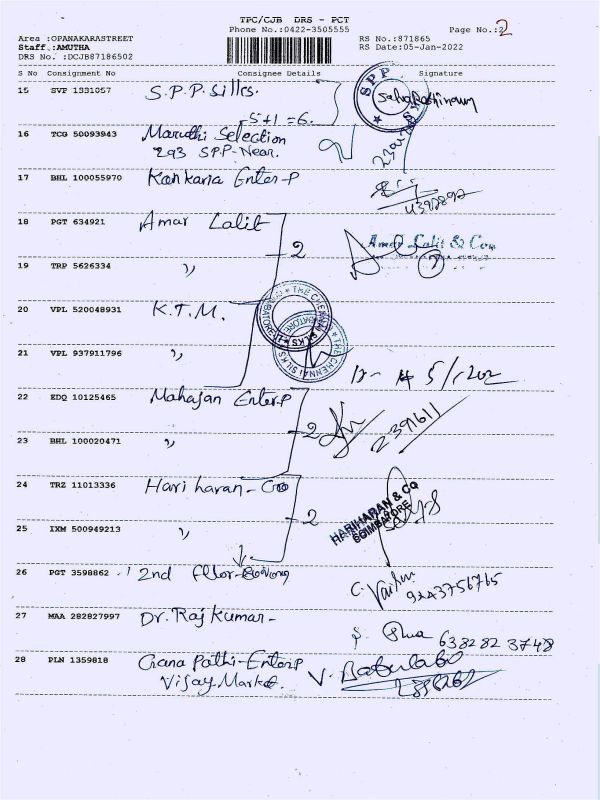 TPC/CJB DRS - PCT
Phone No.:0422-3505555
Page No.:2
Area :OPANAKARASTREET
RS No.:871865
Staff.:AMUTHA
RS Date:05-Jan-2022
DRS No. :DCJB87186502
S No Consignment No Consignee Details Signature
15 SVP 1331057 S.P.P. Silks.
SPP
5+1=6.
16 TCG 50093943 Maruthi Selection
293 SPP-Near.
17 BHL 100055970 Kankana Enter-P
18 PGT 634921 Amar Lalit
2
Amar Lalit & Co
19 TRP 5626334 "
20 VPL 520048931 K.T.M.
THE CHENNAI SILKS
21 VPL 937911796 "
22 EDQ 10125465 Mahajan Enterp
2
2391611
23 BHL 100020471 "
24 TRZ 11013336 Hari haran - Coo
2
HARIHARAN & CO
COIMBATORE
25 IXM 500949213 "
26 PGT 3598862 2nd
9243756765
27 MAA 282827997 Dr. Raj Kumar -
638282 3748
28 PLN 1359818 Gana Pathi - Enterp
Vijay Market.
V. Babulabo